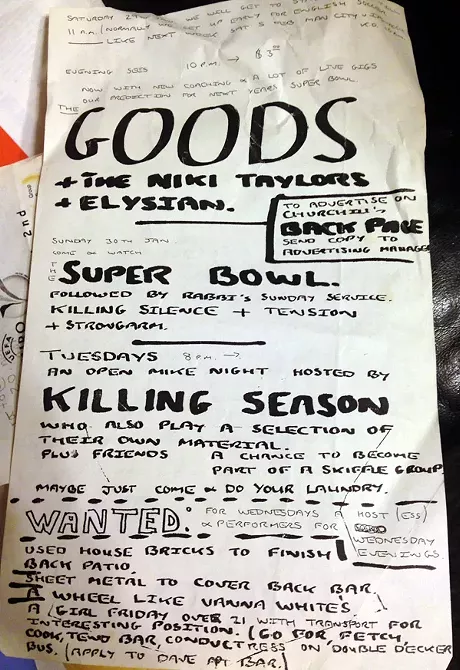 SATURDAY 29TH WE WILL GET TO
11 A.M. (NORMALLY WE GET UP EARLY FOR ENGLISH SOCCER
LIKE NEXT WEEK SAT 5 FEB MAN CITY
EVENING SESS 10 P.M. → $3.00
NOW WITH NEW COACHING & A LOT OF LIVE GIGS
OUR PREDICTION FOR NEXT YEARS SUPER BOWL.
THE
GOODS
+ THE NIKI TAYLORS
+ ELYSIAN.
TO ADVERTISE ON
CHURCHILL'S
BACK PAGE
SEND COPY TO
ADVERTISING MANAGER
SUNDAY 30TH JAN.
COME & WATCH
THE
SUPER BOWL.
FOLLOWED BY RABBI'S SUNDAY SERVICE.
KILLING SILENCE + TENSION
+ STRONGARM.
TUESDAYS 8 P.M. →
AN OPEN MIKE NIGHT HOSTED BY
KILLING SEASON
WHO ALSO PLAY A SELECTION OF
THEIR OWN MATERIAL.
PLUS FRIENDS A CHANCE TO BECOME
PART OF A SKIFFLE GROUP
MAYBE JUST COME & DO YOUR LAUNDRY.
WANTED:
FOR WEDNESDAYS A HOST (ESS)
& PERFORMERS FOR
WEDNESDAY
EVENINGS.
USED HOUSE BRICKS TO FINISH
BACK PATIO.
SHEET METAL TO COVER BACK BAR.
A WHEEL LIKE VANNA WHITE'S.
A GIRL FRIDAY OVER 21 WITH TRANSPORT FOR
INTERESTING POSITION. (GO FOR, FETCH,
COOK, TEND BAR, CONDUCTRESS ON DOUBLE DECKER
BUS. (APPLY TO DAVE AT BAR.)
2nd
UEFA